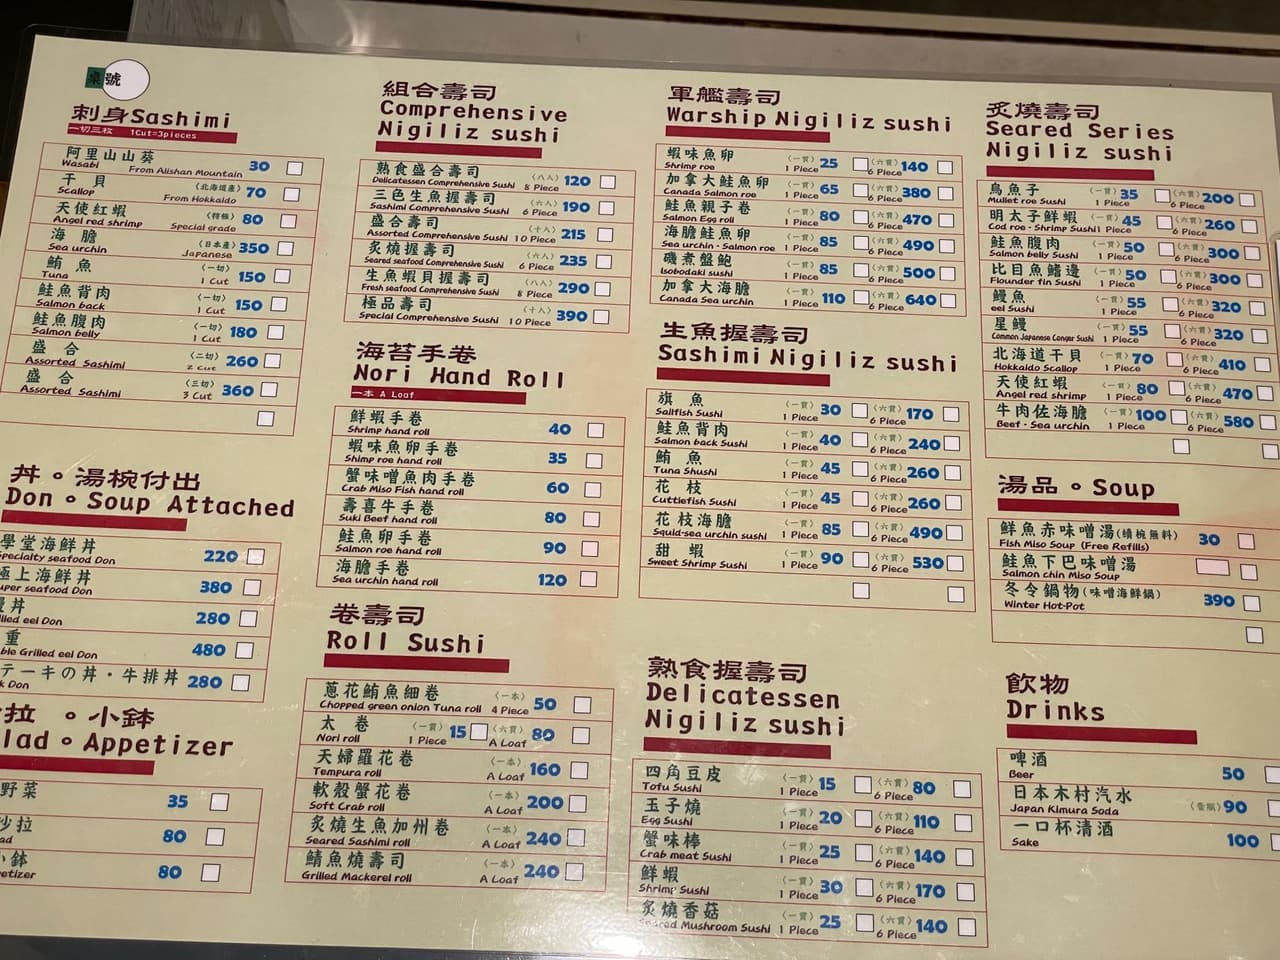 桌號
刺身Sashimi
一切三枚 1Cut=3pieces
阿里山山葵 30
Wasabi From Alishan Mountain
干貝 (北海道產) 70
Scallop From Hokkaido
天使紅蝦 (特極) 80
Angel red shrimp Special grade
海膽 (日本產) 350
Sea urchin Japanese
鮪魚 (一切) 150
Tuna 1 Cut
鮭魚背肉 (一切) 150
Salmon back 1 Cut
鮭魚腹肉 (一切) 180
Salmon belly 1 Cut
盛合 (二切) 260
Assorted Sashimi 2 Cut
盛合 (三切) 360
Assorted Sashimi 3 Cut
丼。湯椀付出
Don。Soup Attached
學堂海鮮丼 220
Specialty seafood Don
極上海鮮丼 380
uper seafood Don
丼 280
lled eel Don
重 480
ble Grilled eel Don
テーキの丼・牛排丼 280
k Don
拉。小鉢
lad。Appetizer
野菜 35
沙拉 80
ad
小鉢 80
etizer
組合壽司
Comprehensive
Nigiliz sushi
熟食盛合壽司 (八入) 120
Delicatessen Comprehensive Sushi 8 Piece
三色生魚握壽司 (六入) 190
Sashimi Comprehensive Sushi 6 Piece
盛合壽司 (十入) 215
Assorted Comprehensive Sushi 10 Piece
炙燒握壽司 (六入) 235
Seared seafood Comprehensive Sushi 6 Piece
生魚蝦貝握壽司 (八入) 290
Fresh seafood Comprehensive Sushi 8 Piece
極品壽司 (十入) 390
Special Comprehensive Sushi 10 Piece
海苔手卷
Nori Hand Roll
一本 A Loaf
鮮蝦手卷 40
Shrimp hand roll
蝦味魚卵手卷 35
Shimp roe hand roll
蟹味噌魚肉手卷 60
Crab Miso Fish hand roll
壽喜牛手卷 80
Suki Beef hand roll
鮭魚卵手卷 90
Salmon roe hand roll
海膽手卷 120
Sea urchin hand roll
卷壽司
Roll Sushi
蔥花鮪魚細卷 (一本) 50
Chopped green onion Tuna roll 4 Piece
太卷 (一貫) 15 (六貫) 80
Nori roll 1 Piece A Loaf
天婦羅花卷 (一本) 160
Tempura roll A Loaf
軟殼蟹花卷 (一本) 200
Soft Crab roll A Loaf
炙燒生魚加州卷 (一本) 240
Seared Sashimi roll A Loaf
鯖魚燒壽司 (一本) 240
Grilled Mackerel roll A Loaf
軍艦壽司
Warship Nigiliz sushi
蝦味魚卵 (一貫) 25 (六貫) 140
Shrimp roe 1 Piece 6 Piece
加拿大鮭魚卵 (一貫) 65 (六貫) 380
Canada Salmon roe 1 Piece 6 Piece
鮭魚親子卷 (一貫) 80 (六貫) 470
Salmon Egg roll 1 Piece 6 Piece
海膽鮭魚卵 (一貫) 85 (六貫) 490
Sea urchin・Salmon roe 1 Piece 6 Piece
磯煮盤鮑 (一貫) 85 (六貫) 500
Isobodaki sushi 1 Piece 6 Piece
加拿大海膽 (一貫) 110 (六貫) 640
Canada Sea urchin 1 Piece 6 Piece
生魚握壽司
Sashimi Nigiliz sushi
旗魚 (一貫) 30 (六貫) 170
Sailfish Sushi 1 Piece 6 Piece
鮭魚背肉 (一貫) 40 (六貫) 240
Salmon back Sushi 1 Piece 6 Piece
鮪魚 (一貫) 45 (六貫) 260
Tuna Shushi 1 Piece 6 Piece
花枝 (一貫) 45 (六貫) 260
Cuttiefish Sushi 1 Piece 6 Piece
花枝海膽 (一貫) 85 (六貫) 490
Squid-sea urchin sushi 1 Piece 6 Piece
甜蝦 (一貫) 90 (六貫) 530
Sweet Shrimp Sushi 1 Piece 6 Piece
熟食握壽司
Delicatessen
Nigiliz sushi
四角豆皮 (一貫) 15 (六貫) 80
Tofu Sushi 1 Piece 6 Piece
玉子燒 (一貫) 20 (六貫) 110
Egg Sushi 1 Piece 6 Piece
蟹味棒 (一貫) 25 (六貫) 140
Crab meat Sushi 1 Piece 6 Piece
鮮蝦 (一貫) 30 (六貫) 170
Shrimp Sushi 1 Piece 6 Piece
炙燒香菇 (一貫) 25 (六貫) 140
Seared Mushroom Sushi 1 Piece 6 Piece
炙燒壽司
Seared Series
Nigiliz sushi
烏魚子 (一貫) 35 (六貫) 200
Mullet roe Sushi 1 Piece 6 Piece
明太子鮮蝦 (一貫) 45 (六貫) 260
Cod roe・Shrimp Sushi 1 Piece 6 Piece
鮭魚腹肉 (一貫) 50 (六貫) 300
Salmon belly Sushi 1 Piece 6 Piece
比目魚鰭邊 (一貫) 50 (六貫) 300
Flounder fin Sushi 1 Piece 6 Piece
鰻魚 (一貫) 55 (六貫) 320
eel Sushi 1 Piece 6 Piece
星鰻 (一貫) 55 (六貫) 320
Common Japanese Conger Sushi 1 Piece 6 Piece
北海道干貝 (一貫) 70 (六貫) 410
Hokkaido Scallop 1 Piece 6 Piece
天使紅蝦 (一貫) 80 (六貫) 470
Angel red shrimp 1 Piece 6 Piece
牛肉佐海膽 (一貫) 100 (六貫) 580
Beef・Sea urchin 1 Piece 6 Piece
湯品。Soup
鮮魚赤味噌湯(續椀無料) 30
Fish Miso Soup (Free Refills)
鮭魚下巴味噌湯
Salmon chin Miso Soup
冬令鍋物(味噌海鮮鍋) 390
Winter Hot-Pot
飲物
Drinks
啤酒 50
Beer
日本木村汽水 90
Japan Kimura Soda
一口杯清酒 100
Sake